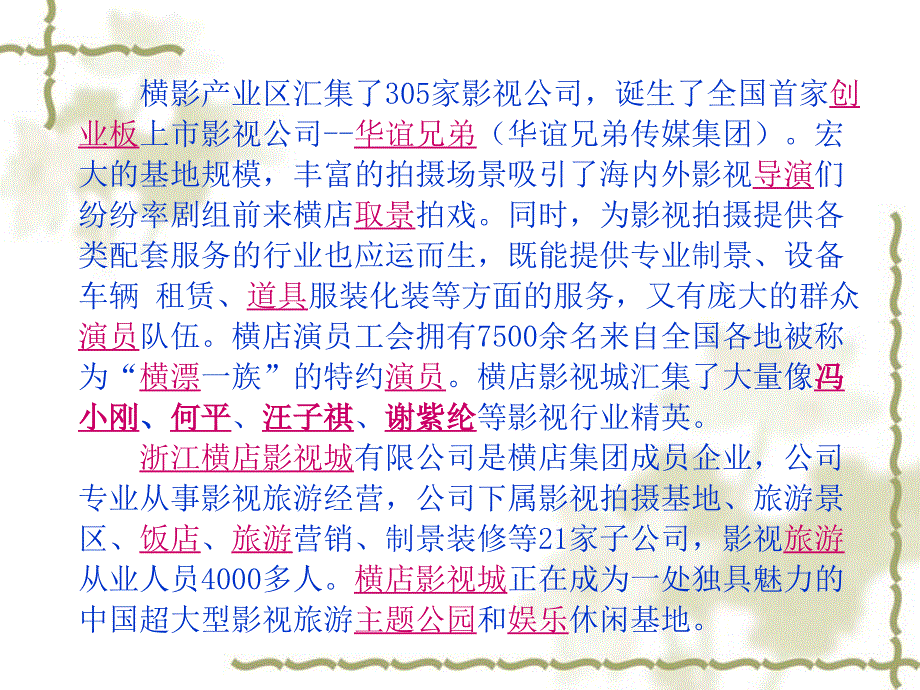 横影产业区汇集了305家影视公司，诞生了全国首家创
业板上市影视公司--华谊兄弟（华谊兄弟传媒集团）。宏
大的基地规模，丰富的拍摄场景吸引了海内外影视导演们
纷纷率剧组前来横店取景拍戏。同时，为影视拍摄提供各
类配套服务的行业也应运而生，既能提供专业制景、设备
车辆 租赁、道具服装化装等方面的服务，又有庞大的群众
演员队伍。横店演员工会拥有7500余名来自全国各地被称
为“横漂一族”的特约演员。横店影视城汇集了大量像冯
小刚、何平、汪子祺、谢紫纶等影视行业精英。
浙江横店影视城有限公司是横店集团成员企业，公司
专业从事影视旅游经营，公司下属影视拍摄基地、旅游景
区、饭店、旅游营销、制景装修等21家子公司，影视旅游
从业人员4000多人。横店影视城正在成为一处独具魅力的
中国超大型影视旅游主题公园和娱乐休闲基地。